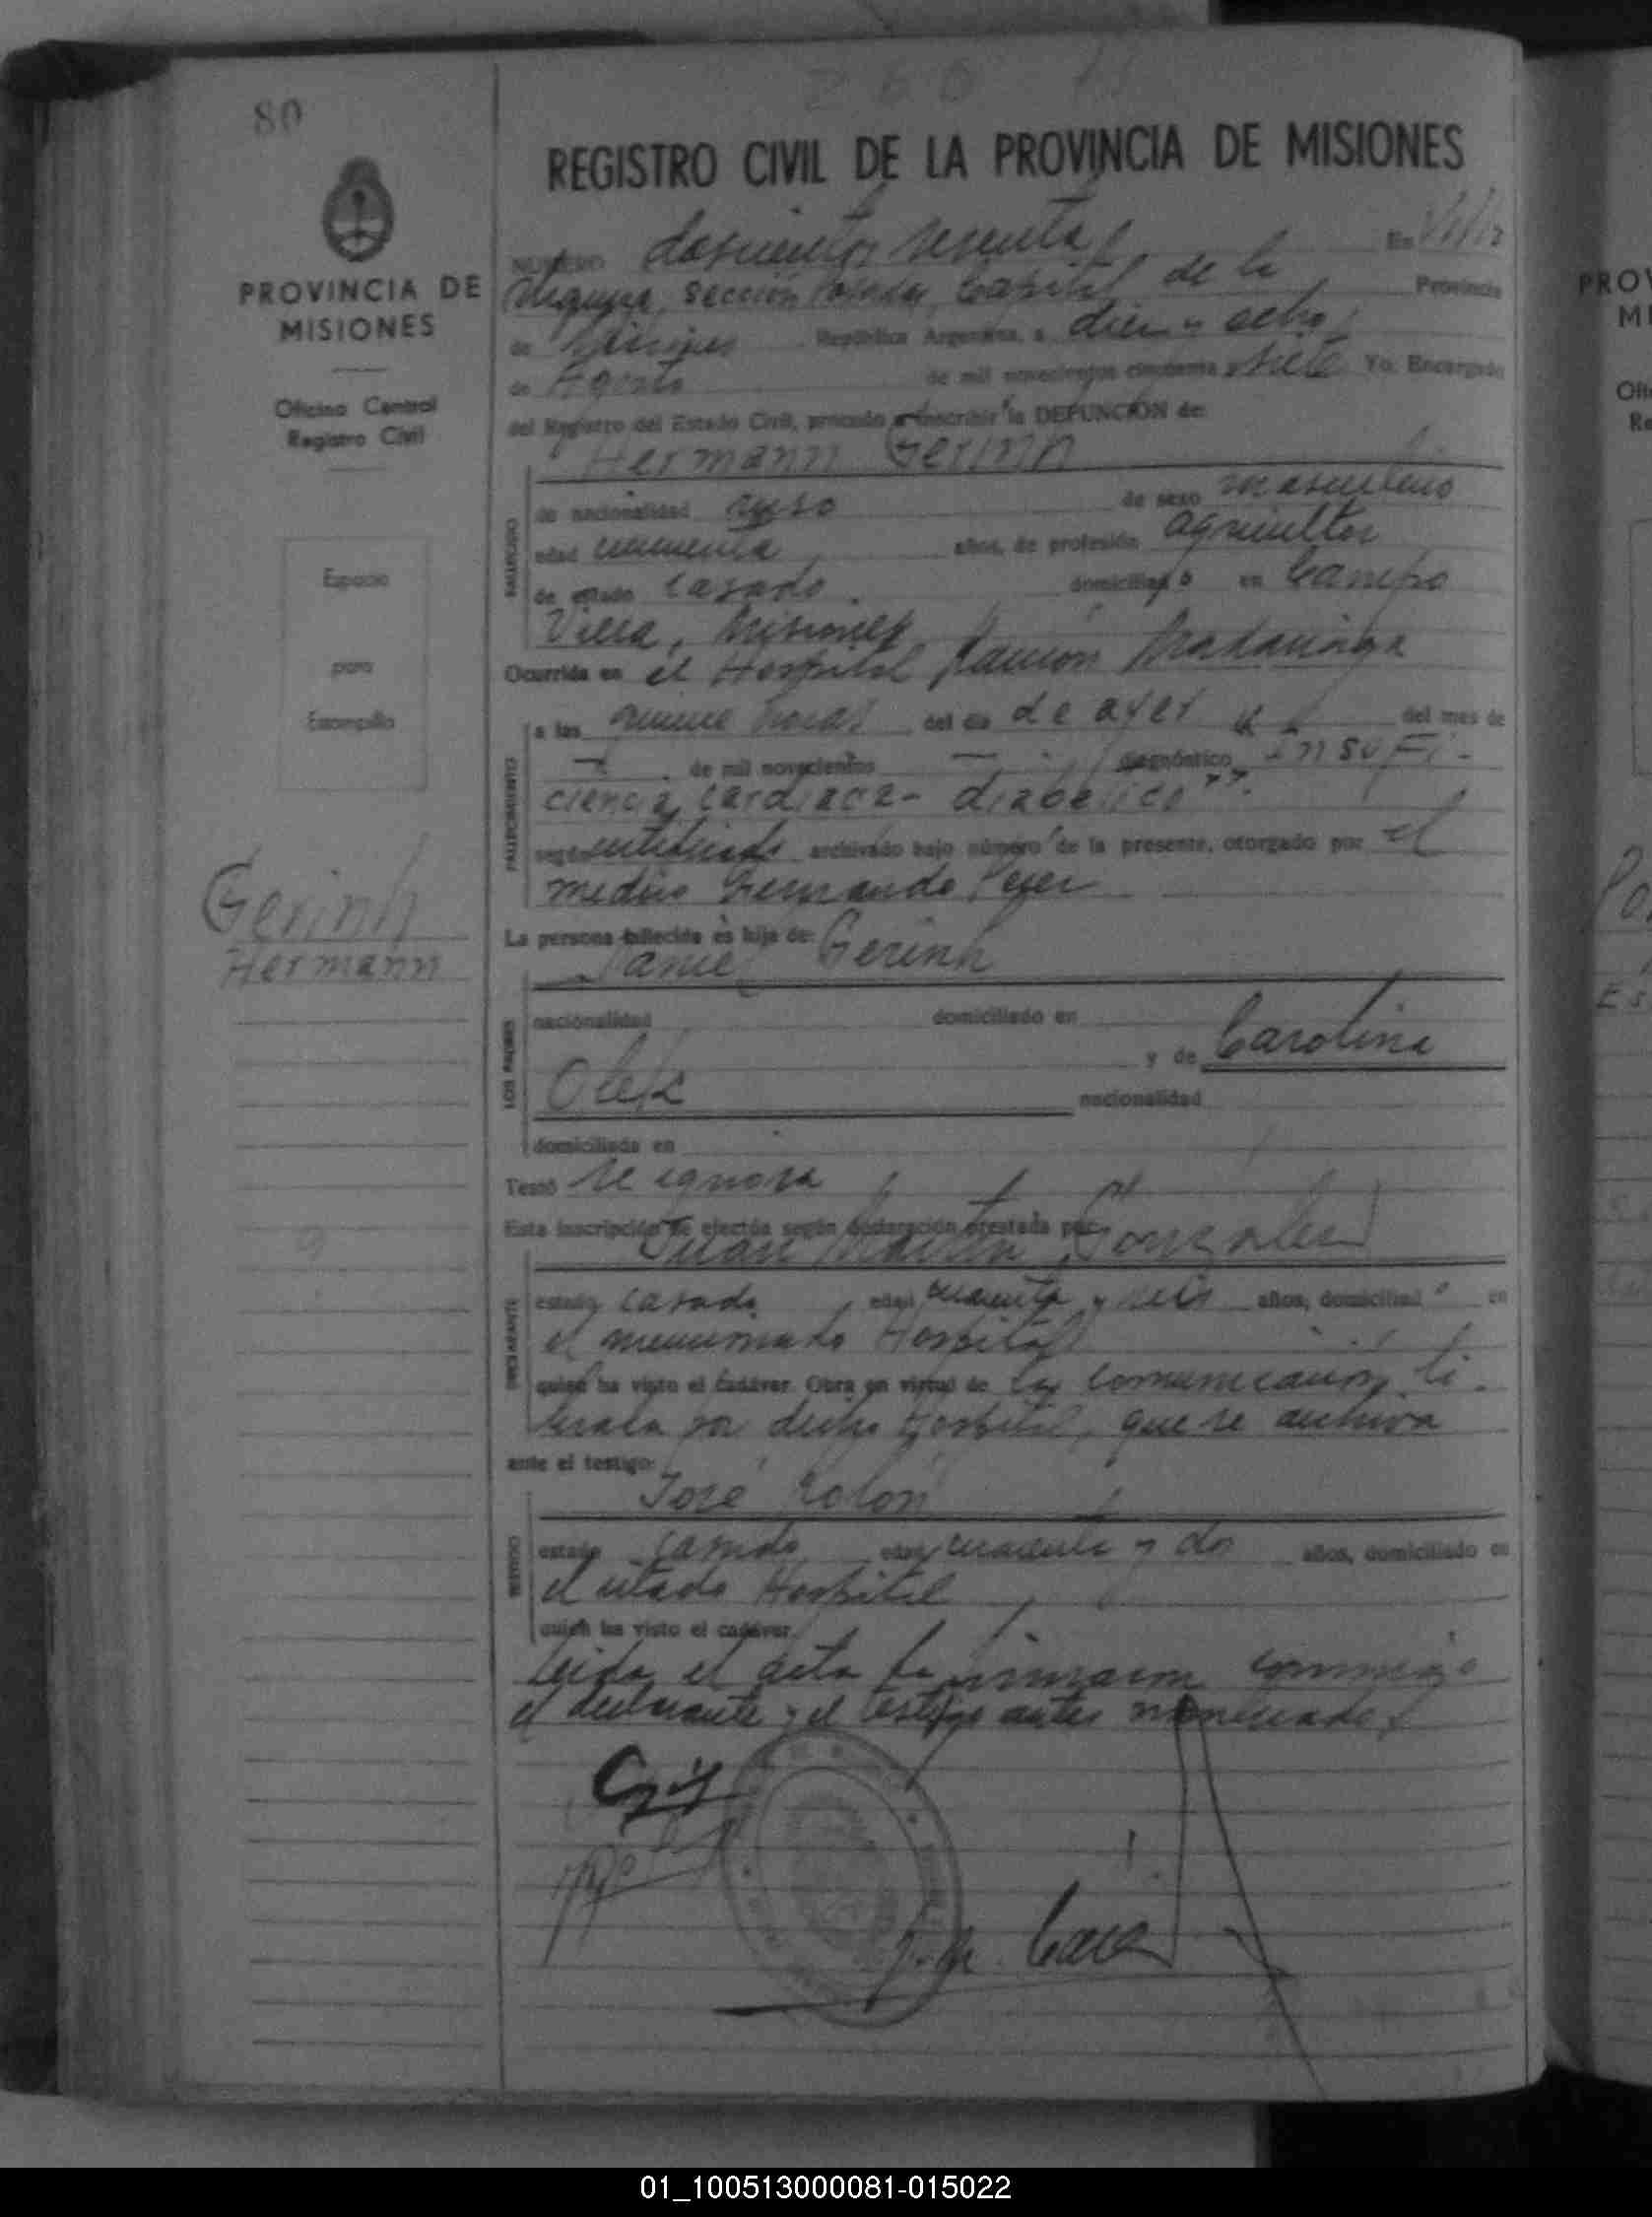 80
260
REGISTRO CIVIL DE LA PROVINCIA DE MISIONES
PROVINCIA DE
MISIONES
Oficina Central
Registro Civil
Espacio
para
Estampilla
NUMERO doscientos sesenta En Villa
sección Posadas, Capital de la Provincia
de Misiones República Argentina, a diez y ocho
de Agosto de mil novecientos cincuenta y siete Yo, Encargado
del Registro del Estado Civil, procedo a inscribir la DEFUNCION de:
Hermann Gerinh
de nacionalidad ruso de sexo masculino
edad años, de profesión agricultor
de estado casado domiciliado en Campo
Viera, Misiones
Ocurrida en el Hospital Ramón Madariaga
a las quince horas del día de ayer del mes de
de mil novecientos diagnóstico "Insufi-
ciencia cardiaca- diabetico".
según certificado archivado bajo número de la presente, otorgado por el
medico
La persona fallecida es hija de:
Daniel Gerinh
nacionalidad domiciliado en
y de Carolina
nacionalidad
domiciliada en
Testó se ignora
Esta inscripción se efectúa según declaración prestada por:
Juan Martín Gonzalez
estado casado edad y seis años, domiciliado en
el mencionado Hospital
quien ha visto el cadáver. Obra en virtud de la comunicación li-
brada por dicho Hospital, que se archiva
ante el testigo:
José Rolón
estado casado edad cuarenta y dos años, domiciliado en
el citado Hospital
quien ha visto el cadáver.
Leída el acta la firmaron conmigo
el declarante y el testigo antes nombrados
Gerinh
Hermann
PROV
MI
01_100513000081-015022